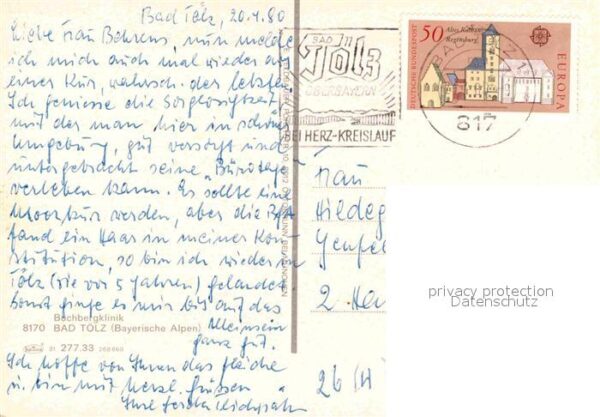 Bad Tölz, 20.4.80
Liebe Frau Behrens, nun melde
ich mich auch mal wieder aus
einer Kur, wahrsch. der letzten.
Ich geniesse die Sorglosigkeit,
mit der man hier in schöner
Umgebung, gut versorgt und
untergebracht seine "Bürotage"
verleben kann. Es sollte eine
Moorkur werden, aber die BfA
fand ein Haar in meiner Kon-
stitution, so bin ich wieder in
Tölz (wie vor 5 Jahren) gelandet.
Sonst ginge es mir bis auf das
Alleinsein
ganz gut.
Ich hoffe von Ihnen das gleiche
u. bin mit herzl. Grüssen
Ihre
Buchbergklinik
8170 BAD TÖLZ (Bayerische Alpen)
31 277.33
BAD
TÖLZ
OBERBAYERN
BEI HERZ-KREISLAUF
BAD TÖLZ 1
817
50
Altes Rathaus
Regensburg
DEUTSCHE BUNDESPOST
EUROPA
Frau
Hildeg
2 Ha
26 (H
privacy protection
Datenschutz